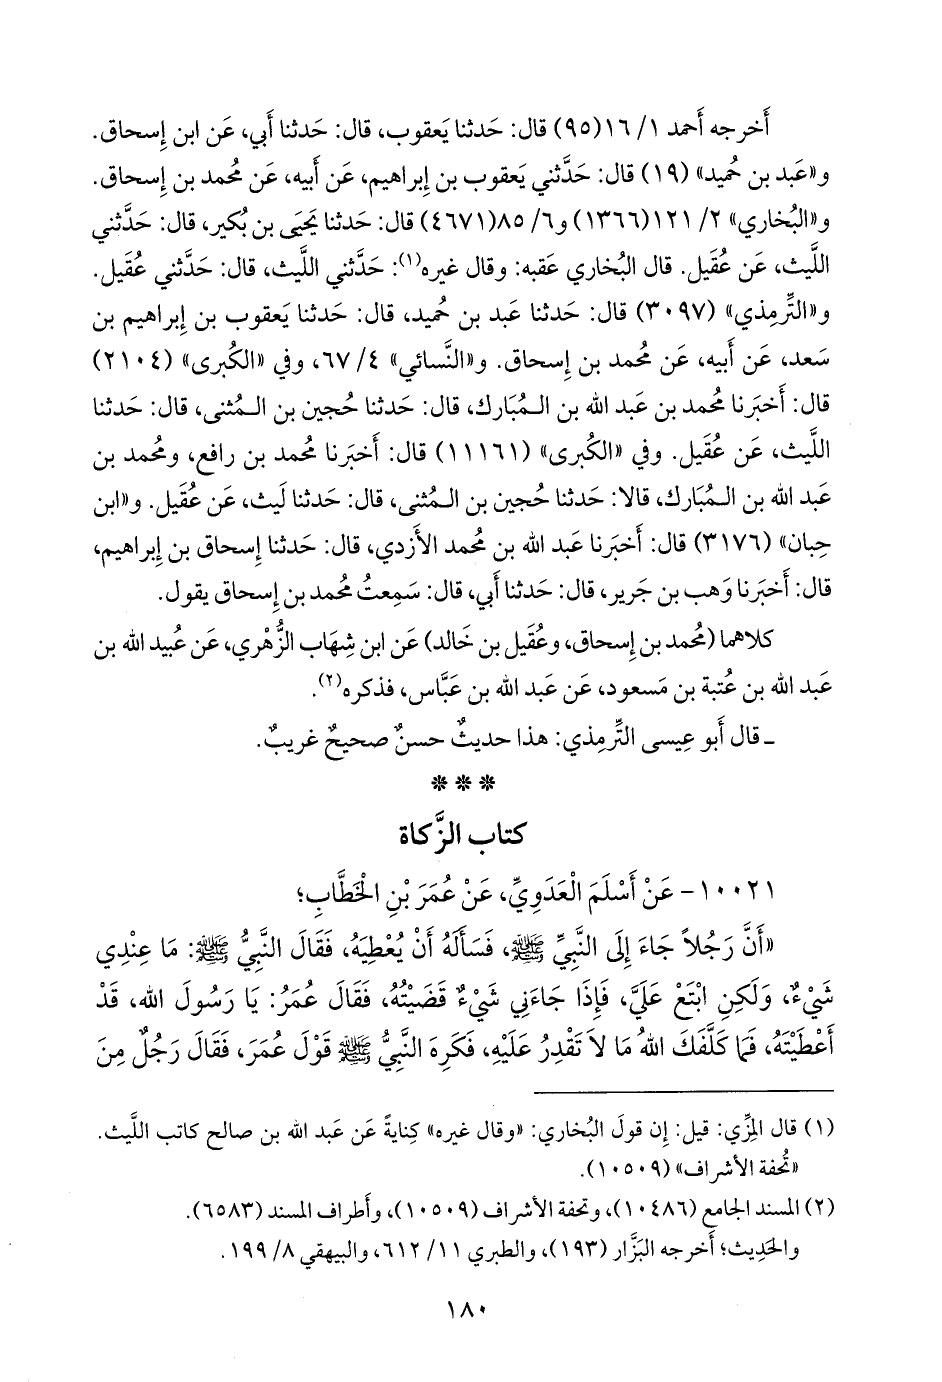 أَخرجه أَحمد ١/ ١٦(٩٥) قال: حَدثنا يَعقوب، قال: حَدثنا أَبي، عَن ابن إِسحاق.
و«عَبد بن حُميد» (١٩) قال: حَدَّثني يَعقوب بن إِبراهيم، عَن أَبيه، عَن محمد بن إِسحاق.
و«البُخاري» ٢/ ١٢١(١٣٦٦) و٦/ ٨٥(٤٦٧١) قال: حَدثنا يَحيَى بن بُكير، قال: حَدَّثني
اللَّيث، عَن عُقَيل. قال البُخاري عَقبه: وقال غيره(١): حَدَّثني اللَّيث، قال: حَدَّثني عُقَيل.
و«التِّرمِذي» (٣٠٩٧) قال: حَدثنا عَبد بن حُميد، قال: حَدثنا يَعقوب بن إِبراهيم بن
سَعد، عَن أَبيه، عَن مُحمد بن إِسحاق. و«النَّسائي» ٤/ ٦٧، وفي «الكُبرى» (٢١٠٤)
قال: أَخبَرنا مُحمد بن عَبد الله بن الـمُبَارك، قال: حَدثنا حُجين بن الـمُثنى، قال: حَدثنا
اللَّيث، عَن عُقَيل. وفي «الكُبرى» (١١١٦١) قال: أَخبَرنا مُحمد بن رافع، ومُحمد بن
عَبد الله بن الـمُبَارك، قالا: حَدثنا حُجين بن الـمُثنى، قال: حَدثنا لَيث، عَن عُقَيل. و«ابن
حِبان» (٣١٧٦) قال: أَخبَرنا عَبد الله بن مُحمد الأَزدي، قال: حَدثنا إِسحاق بن إِبراهيم،
قال: أَخبَرنا وَهب بن جَرير، قال: حَدثنا أَبي، قال: سَمِعتُ مُحمد بن إِسحاق يقول.
كلاهما (مُحمد بن إِسحاق، وعُقَيل بن خَالد) عَن ابن شِهَاب الزُّهْري، عَن عُبيد الله بن
عَبد الله بن عُتبة بن مَسعود، عَن عَبد الله بن عَبَّاس، فذكره(٢).
ـ قال أَبو عِيسى التِّرمِذي: هذا حديثٌ حسنٌ صحيحٌ غريبٌ.
* * *
كتاب الزَّكاة
١٠٠٢١- عَنْ أَسْلَمَ الْعَدَوِيِّ، عَنْ عُمَرَ بْنِ الْخَطَّابِ؛
«أَنَّ رَجُلاً جَاءَ إِلَى النَّبِيِّ ﷺ، فَسَأَلَهُ أَنْ يُعْطِيَهُ، فَقَالَ النَّبِيُّ ﷺ: مَا عِنْدِي
شَيْءٌ، وَلَكِنِ ابْتَعْ عَلَيَّ، فَإِذَا جَاءَنِي شَيْءٌ قَضَيْتُهُ، فَقَالَ عُمَرُ: يَا رَسُولَ الله، قَدْ
أَعْطَيْتَهُ، فَمَا كَلَّفَكَ اللهُ مَا لاَ تَقْدِرُ عَلَيْهِ، فَكَرِهَ النَّبِيُّ ﷺ قَوْلَ عُمَرَ، فَقَالَ رَجُلٌ مِنَ
(١) قال المِزِّي: قيل: إِن قولَ البُخاري: «وقال غيره» كِنايةً عَن عَبد الله بن صالح كاتب اللَّيث.
«تُحفة الأشراف» (١٠٥٠٩).
(٢) المسند الجامع (١٠٤٨٦)، وتحفة الأشراف (١٠٥٠٩)، وأَطراف المسند (٦٥٨٣).
والحَدِيث؛ أَخرجه البَزَّار (١٩٣)، والطبري ١١/ ٦١٢، والبيهقي ٨/ ١٩٩.
١٨٠